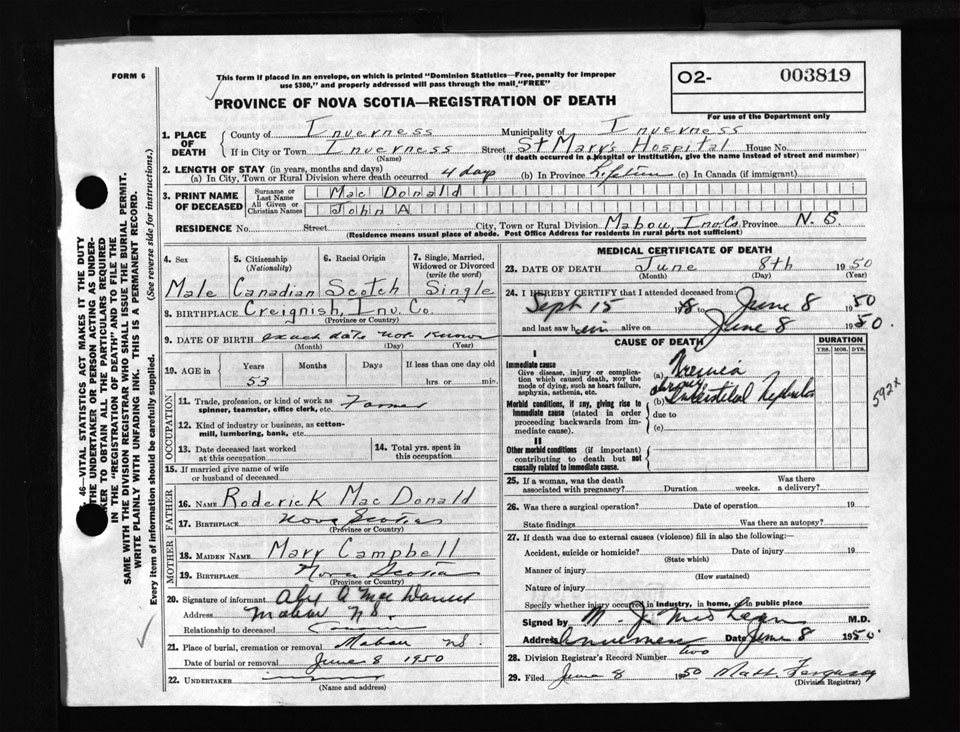 FORM 6
This form if placed in an envelope, on which is printed "Dominion Statistics—Free, penalty for improper
use $300," and properly addressed will pass through the mail "FREE"
O2- 003819
For use of the Department only
PROVINCE OF NOVA SCOTIA—REGISTRATION OF DEATH
1. PLACE OF DEATH
County of Inverness Municipality of Inverness
If in City or Town Inverness Street St Mary's Hospital House No.
(Name) (If death occurred in a hospital or institution, give the name instead of street and number)
2. LENGTH OF STAY (in years, months and days)
(a) In City, Town or Rural Division where death occurred 4 days (b) In Province Lifetime (c) In Canada (if immigrant)
3. PRINT NAME OF DECEASED
Surname or Last Name Mac Donald
All Given or Christian Names John A
RESIDENCE No. Street City, Town or Rural Division Mabou, Inv. Co. Province N. S
(Residence means usual place of abode. Post Office Address for residents in rural parts not sufficient)
4. Sex 5. Citizenship (Nationality) 6. Racial Origin 7. Single, Married, Widowed or Divorced (write the word)
Male Canadian Scotch Single
8. BIRTHPLACE Creignish, Inv. Co.
(Province or Country)
9. DATE OF BIRTH exact date not known
(Month) (Day) (Year)
10. AGE in Years Months Days If less than one day old
53 hrs. or min.
OCCUPATION
11. Trade, profession, or kind of work as spinner, teamster, office clerk, etc. Farmer
12. Kind of industry or business, as cotton-mill, lumbering, bank, etc.
13. Date deceased last worked at this occupation
14. Total yrs. spent in this occupation
15. If married give name of wife or husband of deceased
FATHER
16. NAME Roderick Mac Donald
17. BIRTHPLACE Nova Scotia
(Province or Country)
MOTHER
18. MAIDEN NAME Mary Campbell
19. BIRTHPLACE Nova Scotia
(Province or Country)
20. Signature of informant Alex A
Address Mabou N S.
Relationship to deceased
21. Place of burial, cremation or removal Mabou NS.
Date of burial or removal June 8 1950
22. UNDERTAKER
(Name and address)
MEDICAL CERTIFICATE OF DEATH
23. DATE OF DEATH June 8th 1950
(Month) (Day) (Year)
24. I HEREBY CERTIFY that I attended deceased from
Sept 15 48 June 8 1950
and last saw him alive on June 8 1950.
CAUSE OF DEATH
DURATION
YRS. MOS. DYS.
I
Immediate cause
Give disease, injury or complication which caused death, NOT the mode of dying, such as heart failure, asphyxia, asthenia, etc.
(a) Uremia
Morbid conditions, if any, giving rise to immediate cause (stated in order proceeding backwards from immediate cause).
(b) chronic Interstitial Nephritis
due to
(c)
592x
II
Other morbid conditions (if important) contributing to death but not causally related to immediate cause.
25. If a woman, was the death associated with pregnancy? Duration weeks. Was there a delivery?
26. Was there a surgical operation? Date of operation 19
State findings Was there an autopsy?
27. If death was due to external causes (violence) fill in also the following:—
Accident, suicide or homicide? Date of injury 19
(State which)
Manner of injury
(How sustained)
Nature of injury
Specify whether injury occurred in industry, in home, or in public place
Signed by M. J. M.D.
Address Inverness Date June 8 1950
28. Division Registrar's Record Number two
29. Filed June 8 1950 Matt. Ferguson
(Division Registrar)
46—VITAL STATISTICS ACT MAKES IT THE DUTY
THE UNDERTAKER OR PERSON ACTING AS UNDER-
TAKER TO OBTAIN ALL THE PARTICULARS REQUIRED
IN THE "REGISTRATION OF DEATH" AND TO FILE THE
SAME WITH THE DIVISION REGISTRAR WHO SHALL ISSUE THE BURIAL PERMIT.
WRITE PLAINLY WITH UNFADING INK. THIS IS A PERMANENT RECORD.
Every item of information should be carefully supplied. (See reverse side for instructions.)